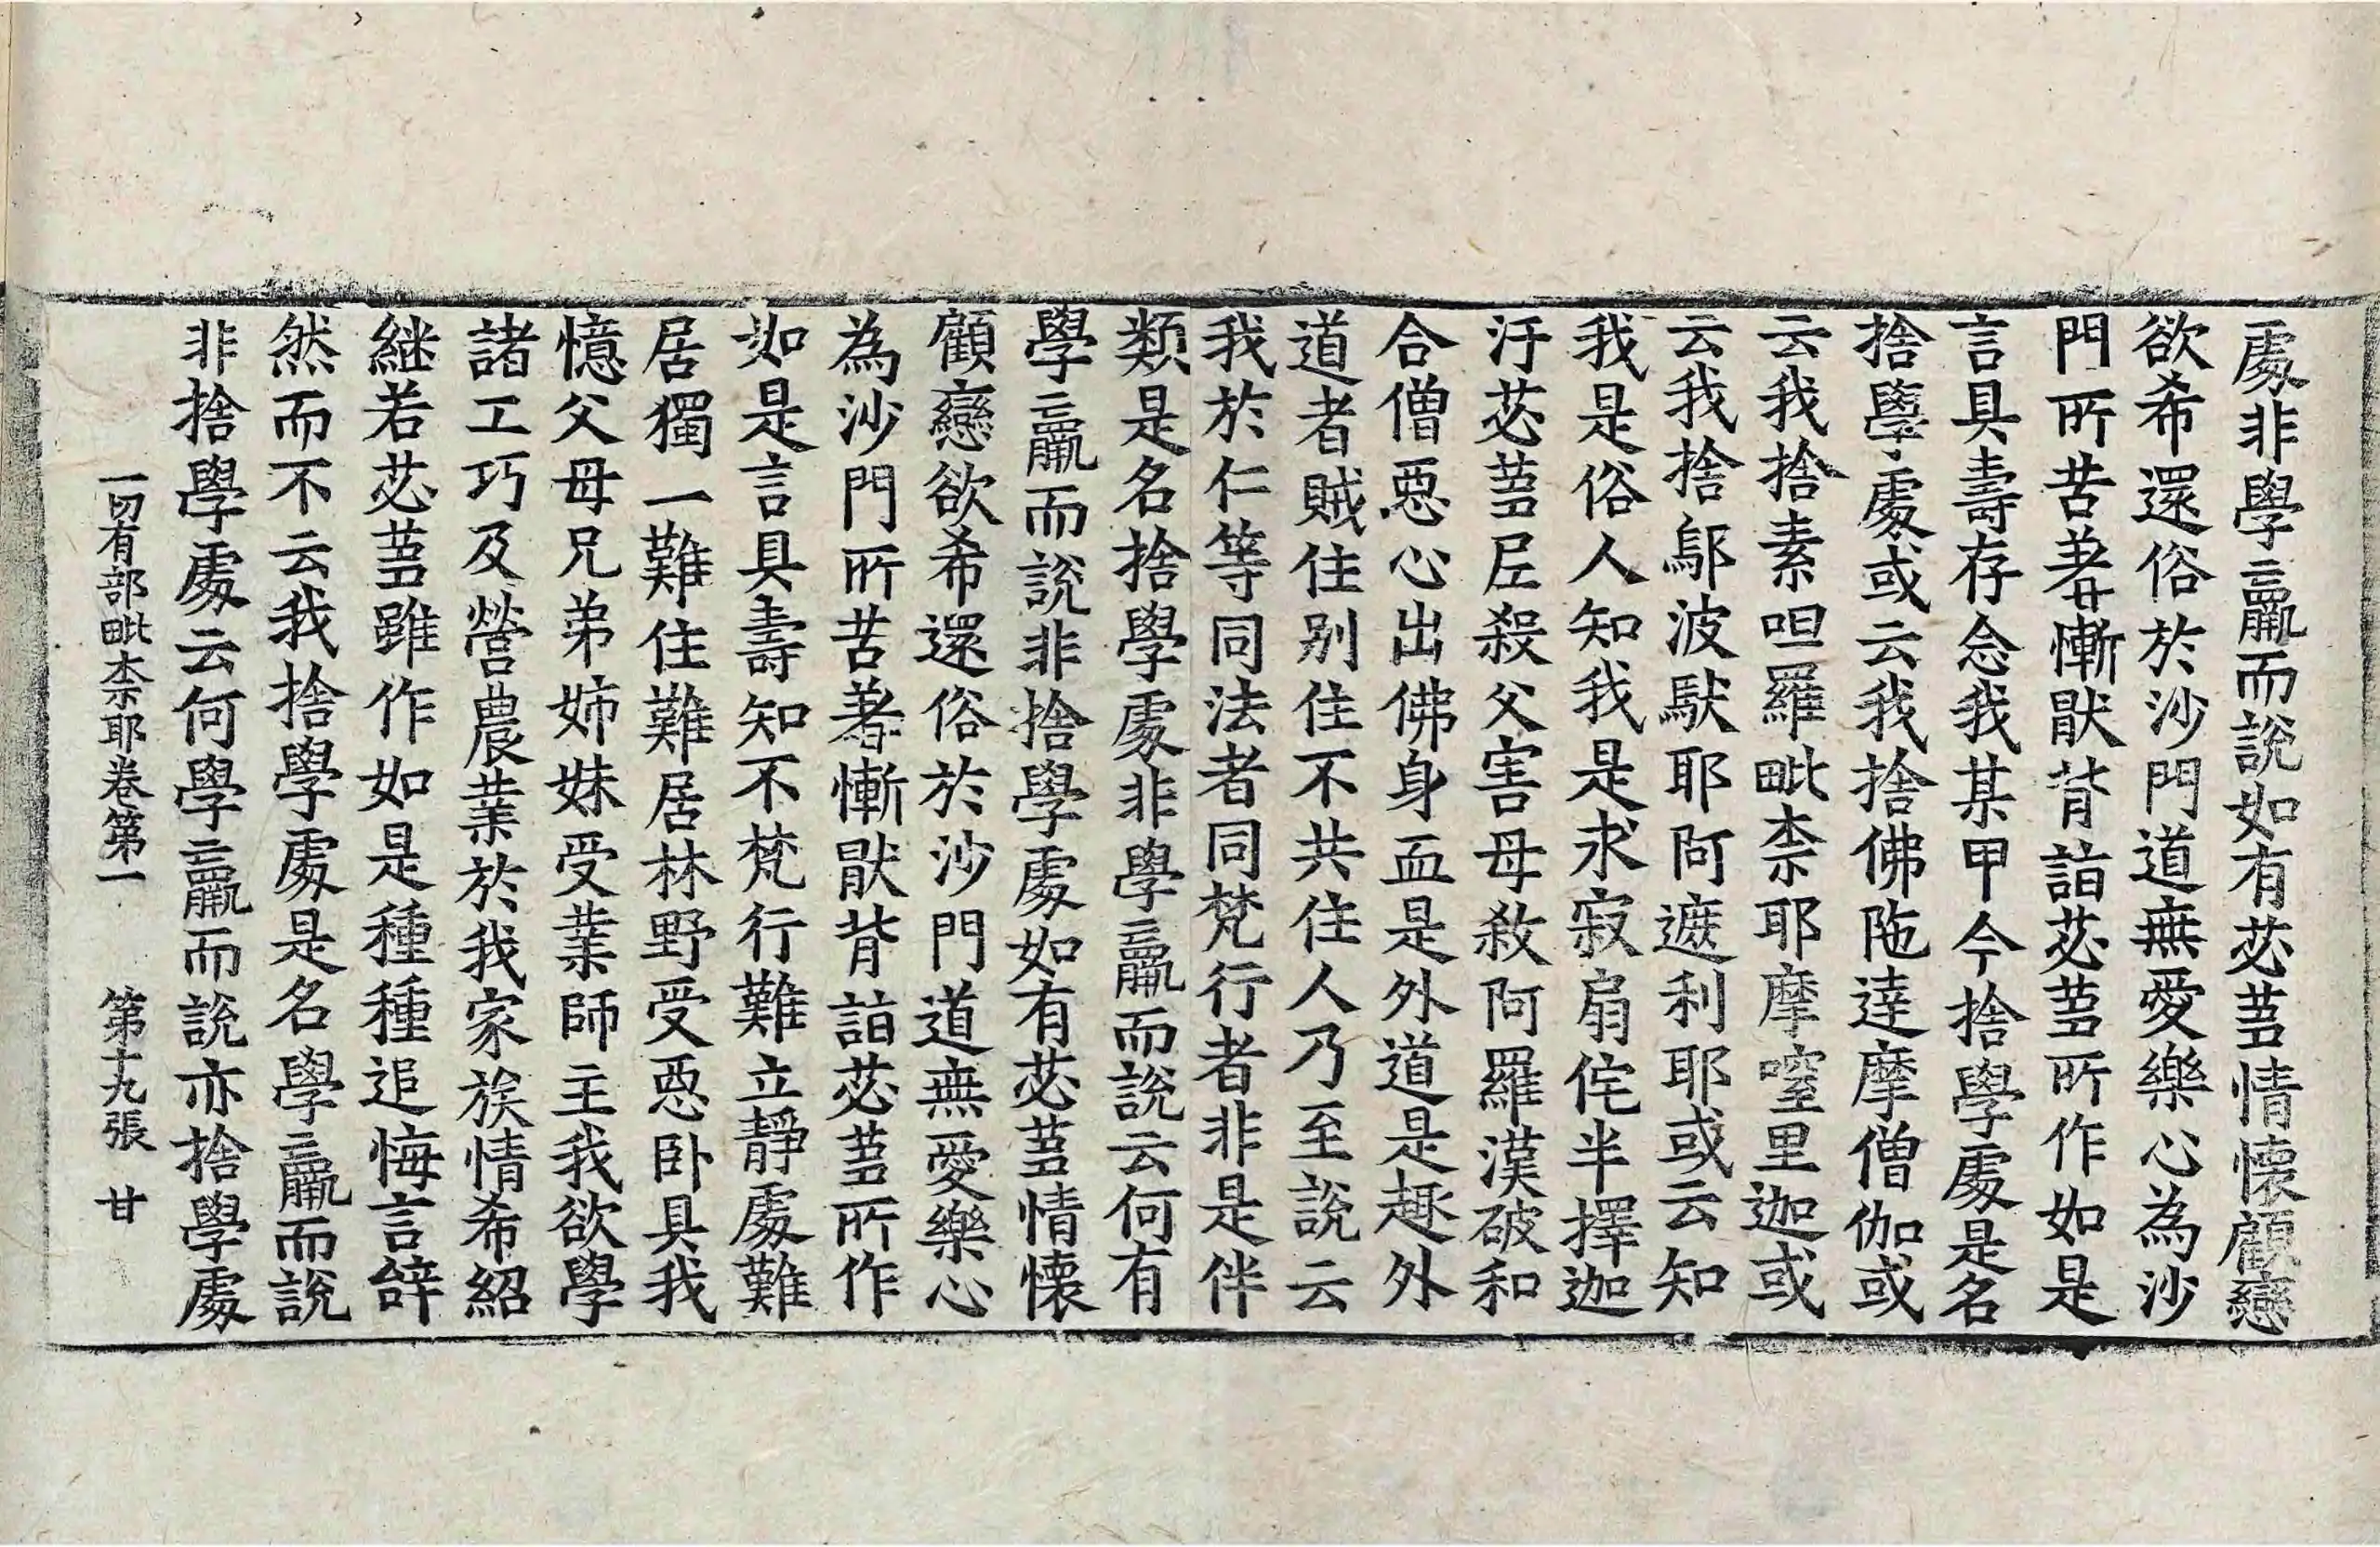 處非學羸而說如有苾蒭情懷顧戀
欲希還俗於沙門道無愛樂心為沙
門所苦羞慚猒背詣苾蒭所作如是
言具壽存念我某甲今捨學處是名
捨學處或云我捨佛陁達摩僧伽或
云我捨素呾羅毗柰耶摩窒里迦或
云我捨鄔波馱耶阿遮利耶或云知
我是俗人知我是求寂扇侘半擇迦
汙苾蒭尼殺父害母殺阿羅漢破和
合僧惡心出佛身血是外道是趣外
道者賊住別住不共住人乃至說云
我於仁等同法者同梵行者非是伴
類是名捨學處非學羸而說云何有
學羸而說非捨學處如有苾蒭情懷
顧戀欲希還俗於沙門道無愛樂心
為沙門所苦羞慚猒背詣苾蒭所作
如是言具壽知不梵行難立靜處難
居獨一難住難居林野受惡卧具我
憶父母兄弟姉妹受業師主我欲學
諸工巧及營農業於我家族情希紹
継若苾蒭雖作如是種種追悔言辝
然而不云我捨學處是名學羸而說
非捨學處云何學羸而說亦捨學處
一切有部毗柰耶卷第一　第十九張　甘